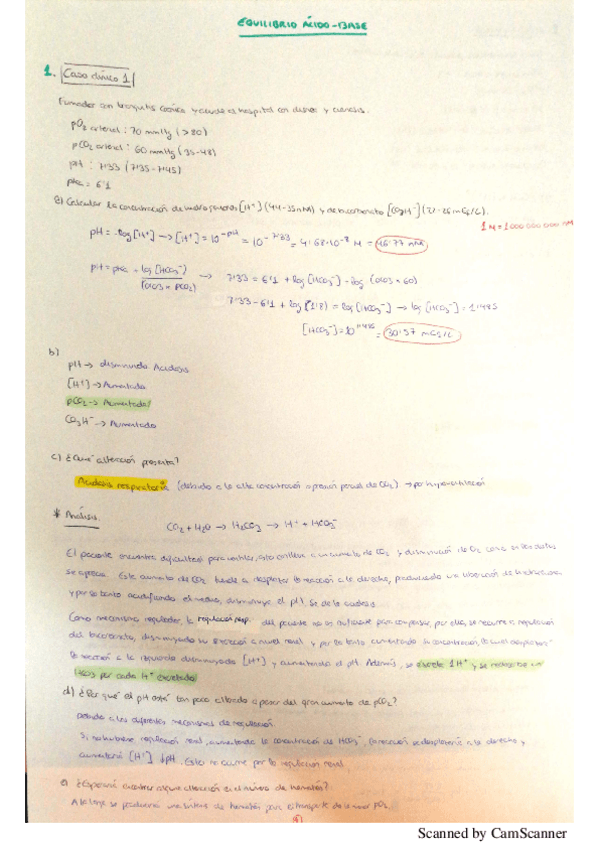 EQUILIBRIO ÁCIDO-BASE
1. Caso clínico 1
Fumador con bronquitis crónica y acude al hospital con disnea y cianosis.
pO2 arterial: 70 mmHg (>80)
pCO2 arterial: 60 mmHg (35-48)
pH: 7'33 (7'35-7'45)
pka = 6'1
a) Calcular la concentración de hidrogeniones [H+] (44-35nM) y de bicarbonato [CO3H-] (21-26 mEq/L).
1 M = 1 000 000 000 nM
pH = -log[H+] → [H+] = 10^-pH = 10^-7'33 = 4'68·10^-8 M = 46'77 nM
pH = pka + log [HCO3-] / (0'03 x PCO2) → 7'33 = 6'1 + log [HCO3-] - log (0'03 x 60)
7'33 - 6'1 + log (1'8) = log [HCO3-] → log [HCO3-] = 1'485
[HCO3-] = 10^1'485 = 30'57 mEq/L
b)
pH → disminuido Acidosis
[H+] → Aumentada
pCO2 → Aumentada
CO3H- → Aumentado
c) ¿Qué alteración presenta?
Acidosis respiratoria (debido a la alta concentración o presión parcial de CO2) → por hipoventilación
* Análisis.
CO2 + H2O → H2CO3 → H+ + HCO3-
El paciente encuentra dificultades para ventilar, esto conlleva a un aumento de CO2 y disminución de O2 como en los datos
se aprecia. Este aumento de CO2 tiende a desplazar la reacción a la derecha, produciendo una liberación de
y por lo tanto acidificando el medio, disminuye el pH. Se da la acidosis
Como mecanismo regulador, la regulación resp. del paciente no es suficiente para compensar, por ello, se recurre a regulación
del bicarbonato, disminuyendo su excreción a nivel renal y por lo tanto aumentando su concentración, lo cual
la reacción a la izquierda disminuyendo [H+] y aumentando el pH. Además, se excreta 1H+ y se reabsorbe un
HCO3 por cada H+ excretado
d) ¿Por qué el pH está tan poco alterado a pesar del gran aumento de pCO2?
Debido a los diferentes mecanismos de regulación.
Si no hubiese regulación renal, aumentando la concentración de HCO3-, la reacción se desplazaría a la derecha y
aumentaría [H+] ↓pH. Esto no ocurre por la regulación renal.
e) ¿Esperaría encontrar alguna alteración en el número de hematíes?
A la larga se produciría una síntesis de hematíes para el transporte de la menor pO2.
Scanned by CamScanner